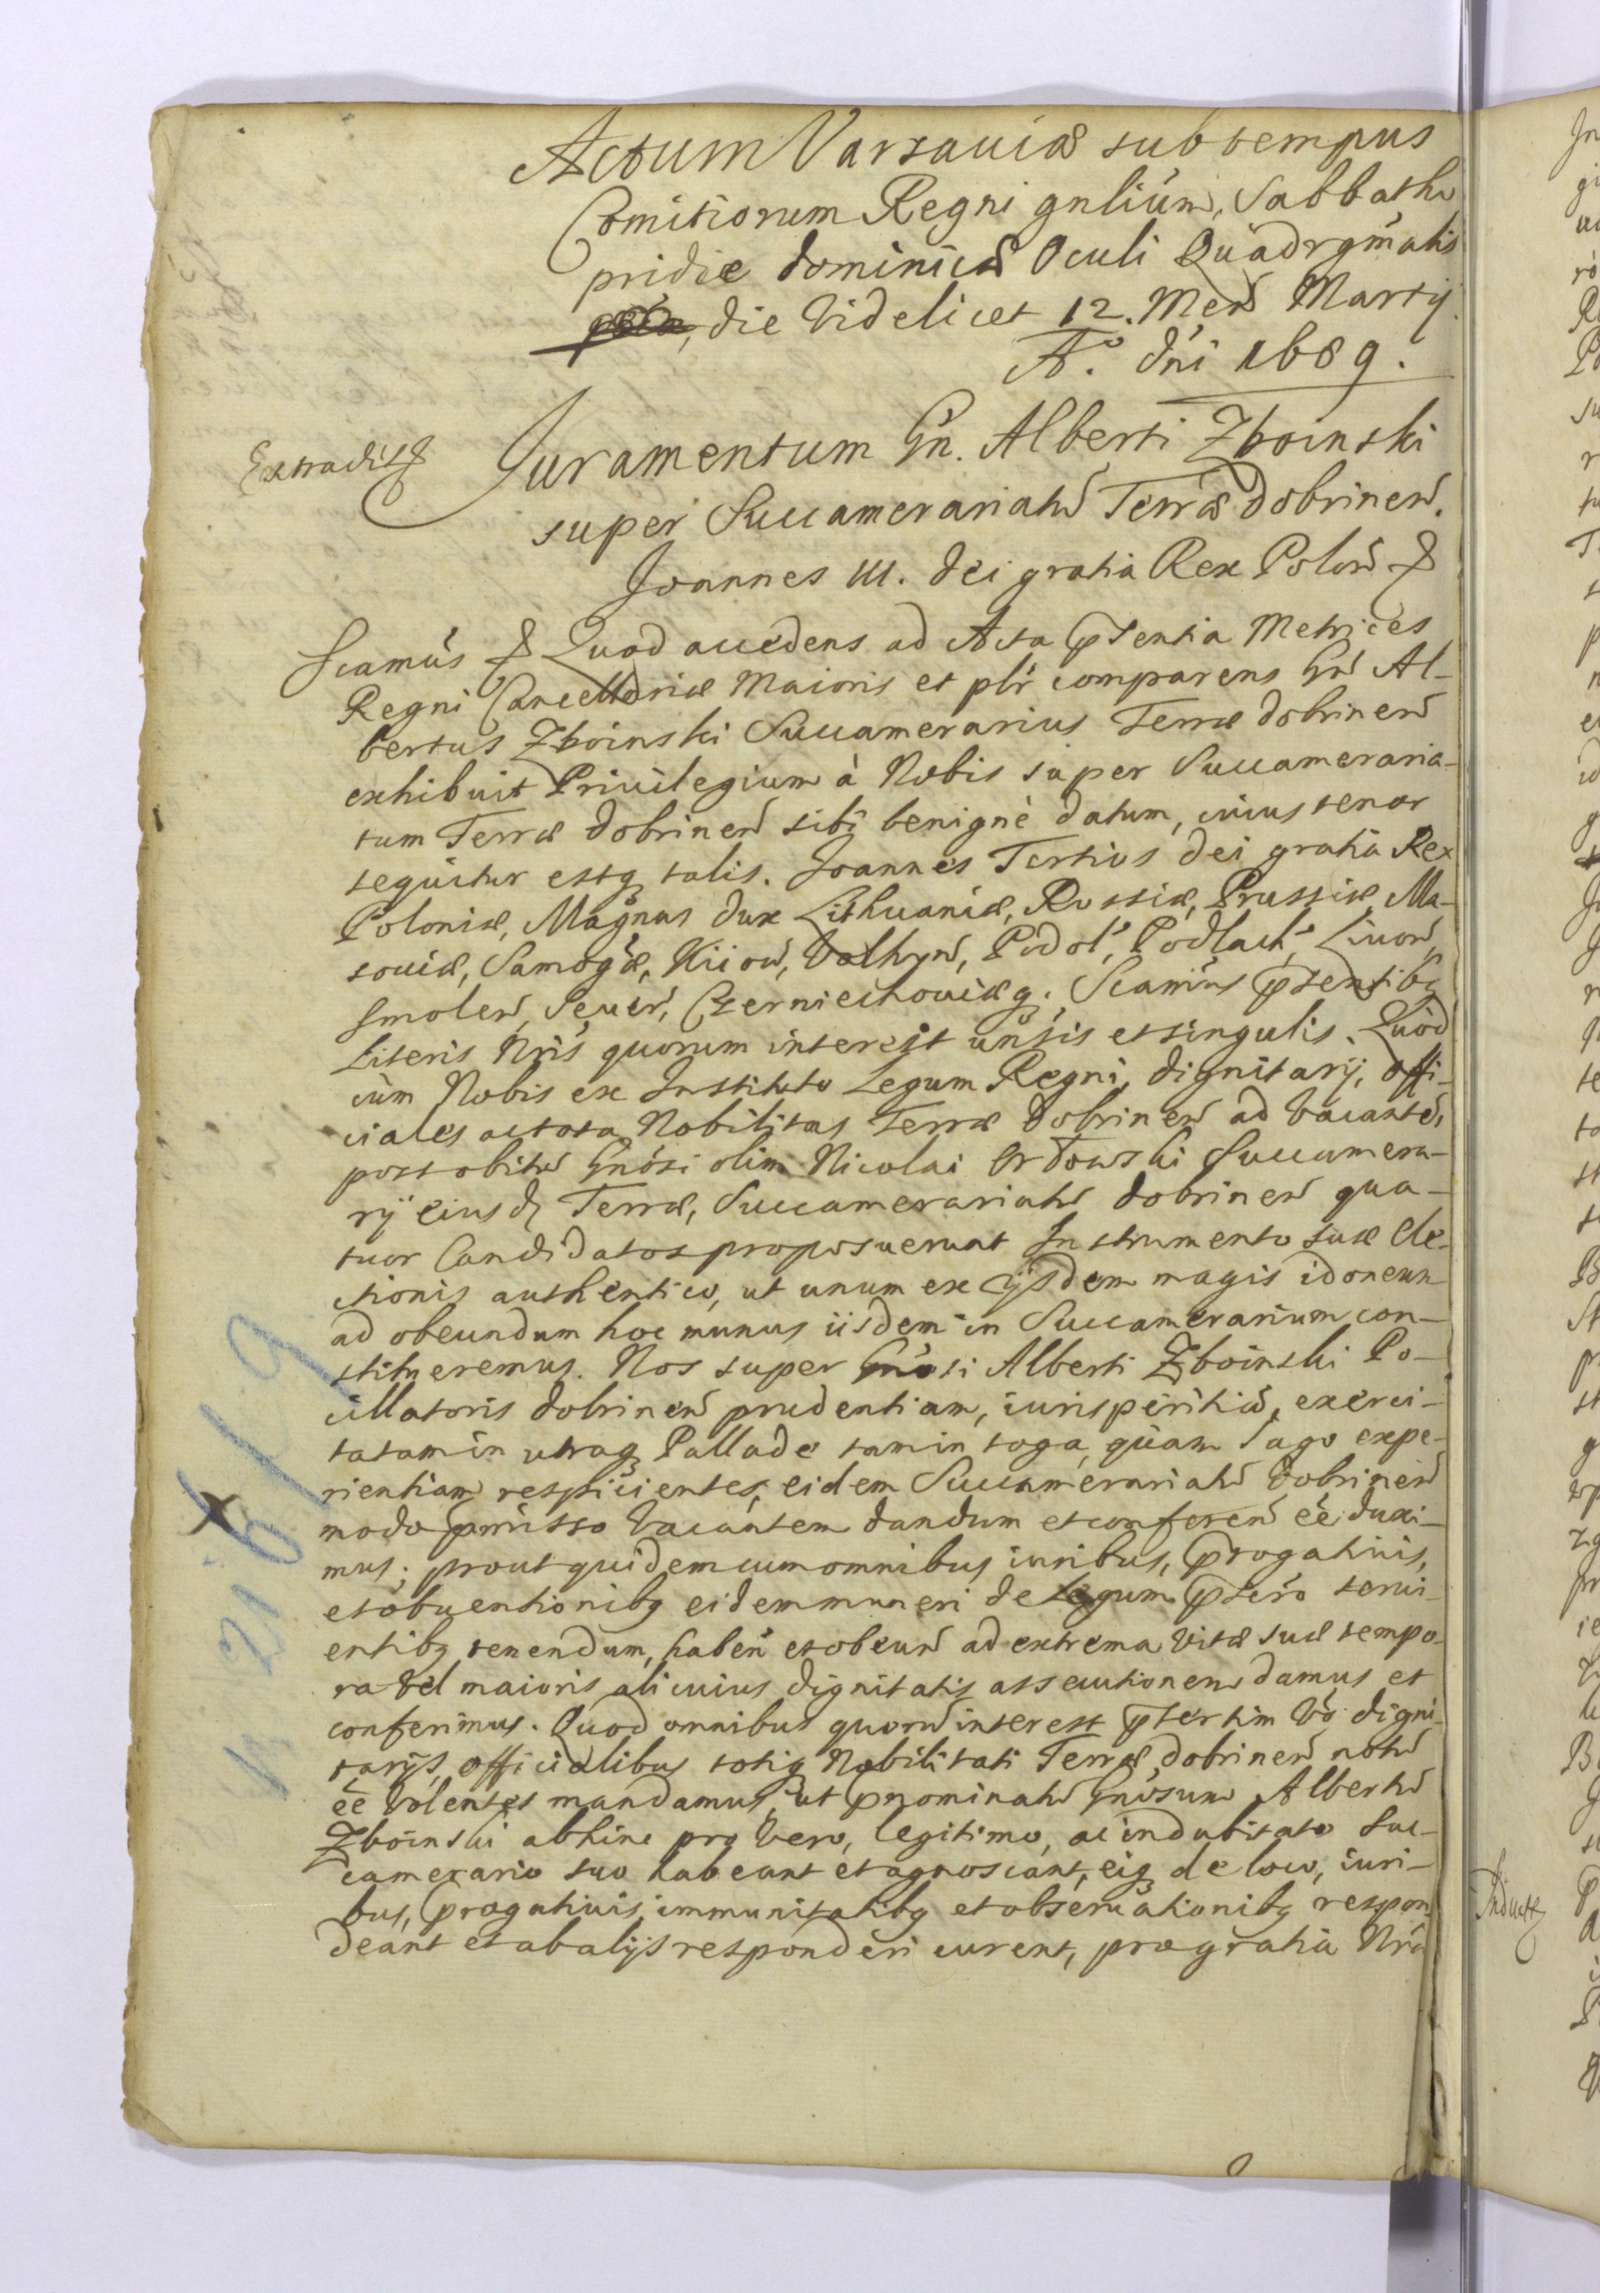 Actum Varsaviæ sub tempus
Comitiorum Regni gnlium, Sabbatho
pridie Dominicæ Oculi Quadrgmalis
die Videlicet 12. Mens Martij.
Ao. Dni 1689.
Extradit
Juramentum Gn. Alberti Zboinski
super Succamerariatu Terræ Dobrinen.
Joannes III. Dei gratia Rex Polon &
Scamus & Quod accedens ad Acta Psentia Metrices
Regni Cancellariæ Maioris et plr comparens Gn Al-
bertus Zboinski Succamerarius Terræ Dobrinen
exhibuit Privilegium à Nobis super Succameraria-
tum Terræ Dobrinen sibi benignè datum, cuius tenor
sequitur estq talis. Joannes Tertius Dei gratia Rex
Poloniæ, Magnus Dux Lithuaniæ, Russiæ, Prussiæ, Ma-
soviæ, Samogæ, Kiiov, Volhyn, Podol, Podlach, Livon,
Smolen, Sever, Czerniechoviæq. Scamus Psentibq
Literis Nris quorum interest unsis et singulis. Quod
cum Nobis ex Instituto Legum Regni, dignitarij, offi-
ciales ac tota Nobilitas Terræ Dobrinen ad vacante,
post obitu Gnosi olim Nicolai Orłowski Succamera-
rij eiusd Terræ, Succamerariatu Dobrinen qua-
tuor Candidatos proposuerunt Instrumento suæ Ele-
ctionis authentico, ut unum ex ijsdem magis idoneum
ad obeundum hoc munus iisdem in Succamerarium con-
stitueremus. Nos super Gnosi Alberti Zboinski Po-
cillatoris Dobrinen prudentiam, iurisperitia, exerci-
tatam in utraq Pallade tam in toga, quam sago expe-
rientiam respicientes, eidem Succamerariatu Dobrinen
modo pmisso Vacantem dandum et conferen eé duxi-
mus; prout quidem cum omnibus iuribus, Progativis,
et obventionibq eidem muneri de legum Pscro servi-
entibq tenendum, haben et obeun ad extrema Vitæ suæ tempo-
ra Vel maioris alicuius dignitatis assecutionem damus et
conferimus. Quod omnibus quoru interest Psertim Vo digni-
tarijs, officialibus totiq Nobilitati Terræ Dobrinen notu
eé Volentes mandamus, ut Pnominatu Gnosum Albertu
Zboinski abhinc pro Vero, legitimo, ac indubitato Suc-
camerario suo habeant et agnoscant, eiq de loco, iuri-
bus, Progativis, immunitatibq et observationibq respon
deant et ab alijs responderi curent, pro gratia Nra